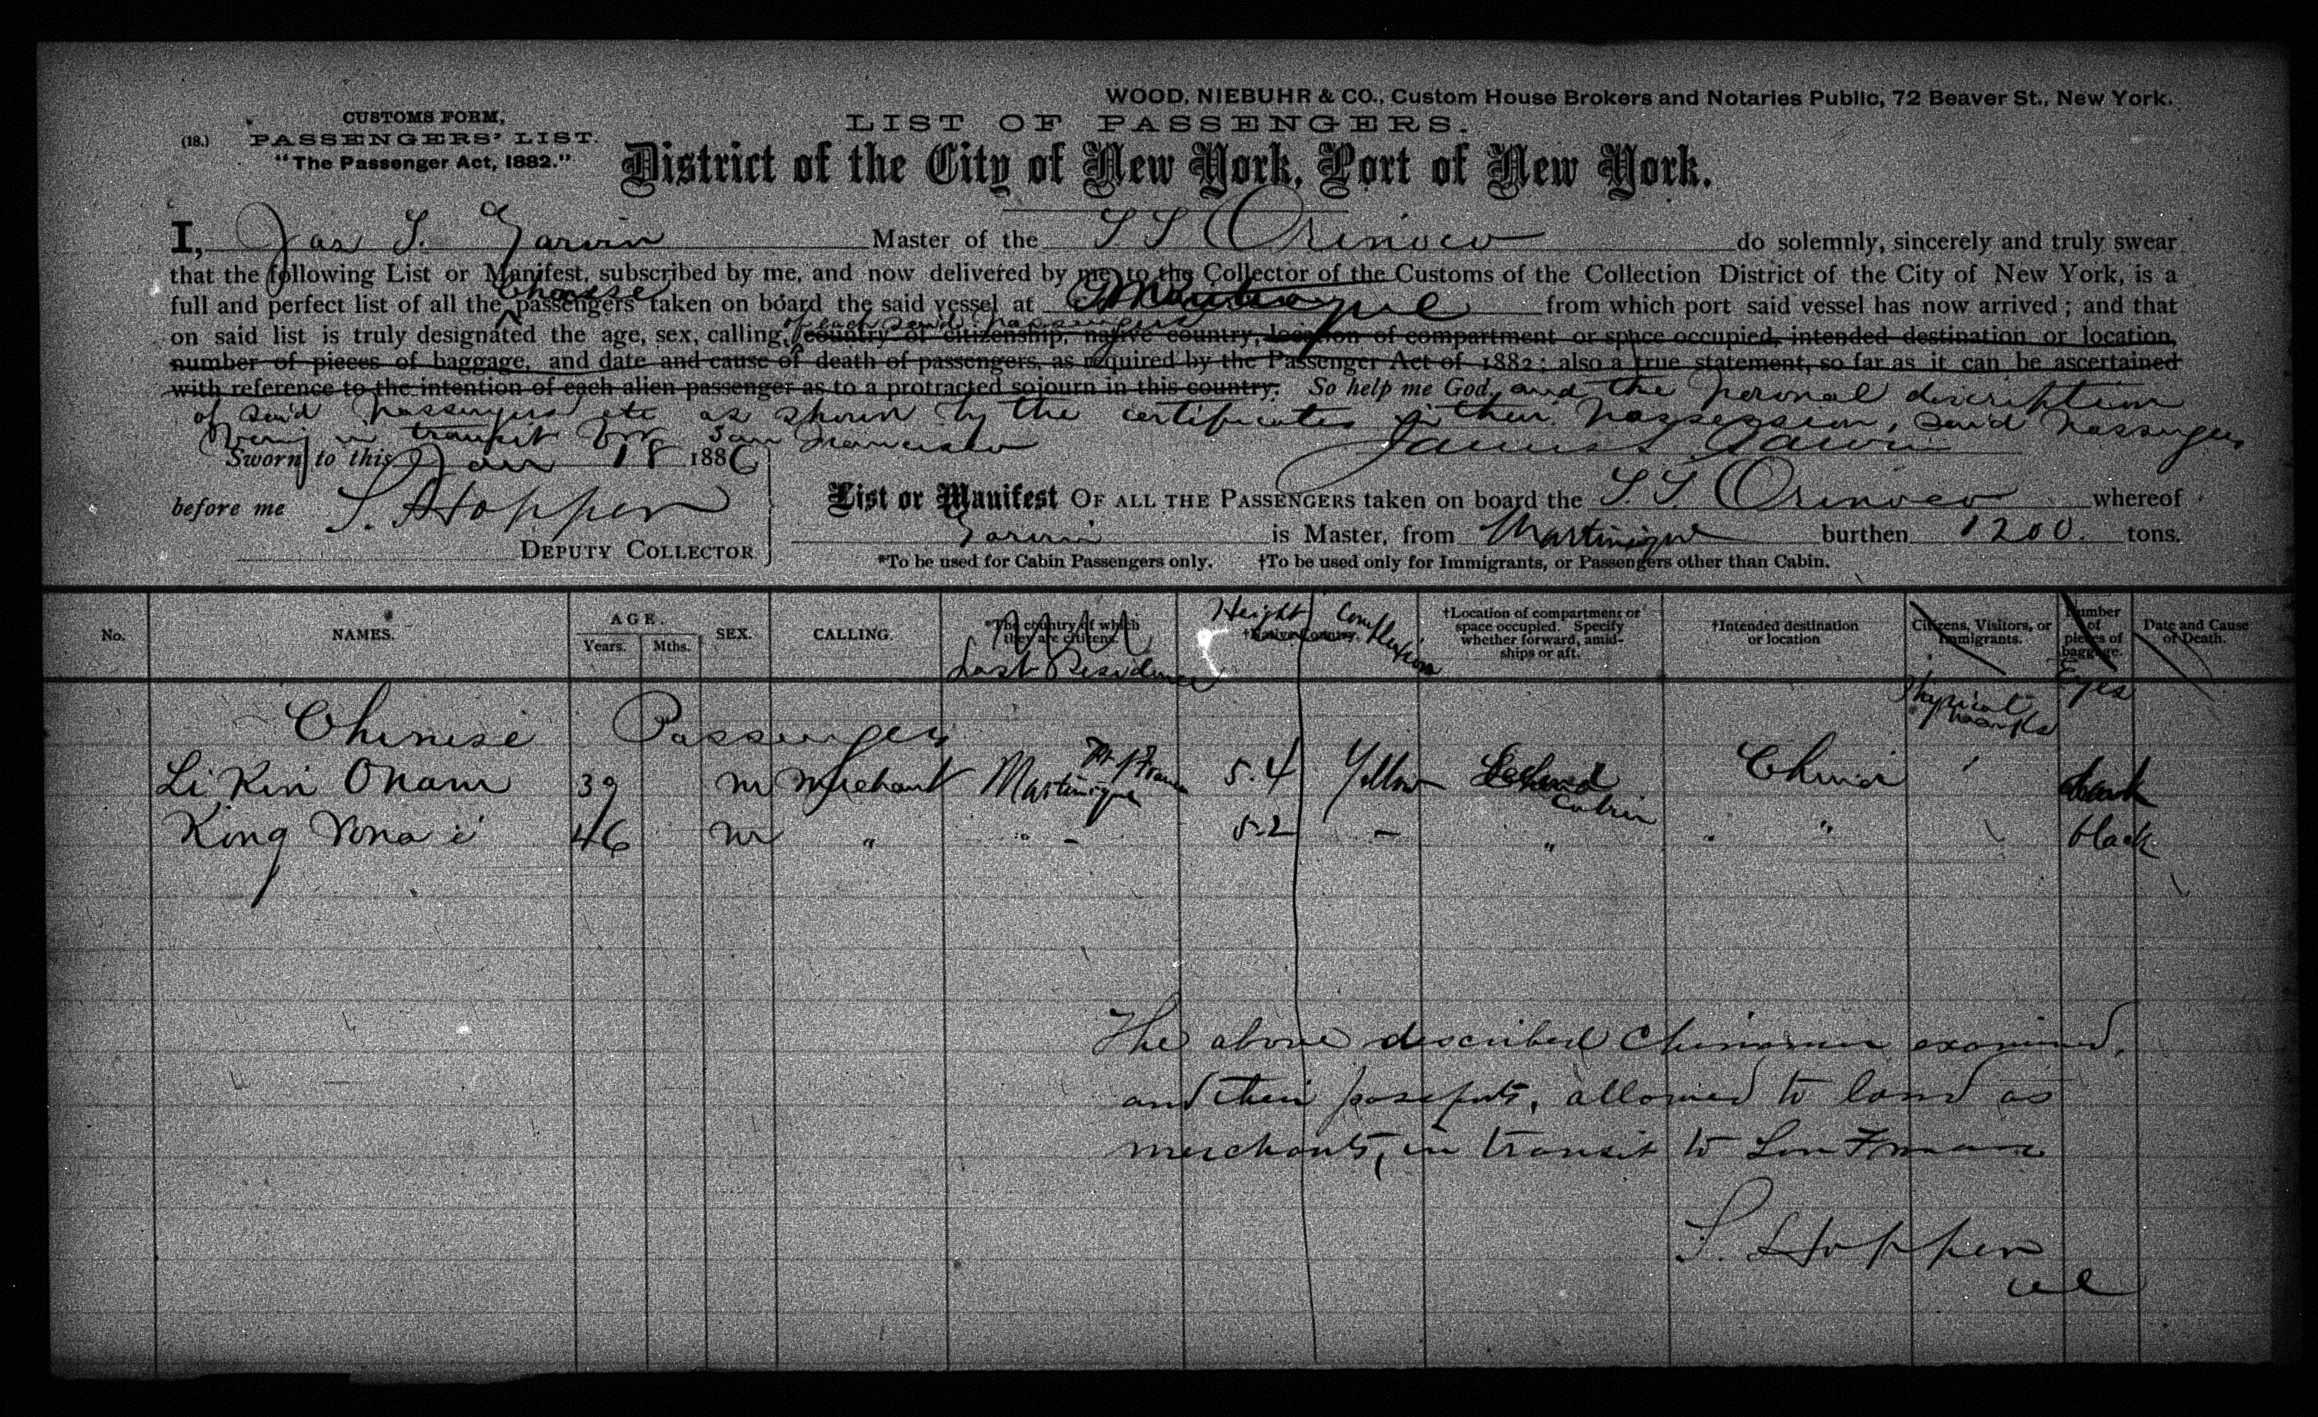 WOOD, NIEBUHR & CO., Custom House Brokers and Notaries Public, 72 Beaver St., New York.
CUSTOMS FORM,
(18.) PASSENGERS' LIST.
"The Passenger Act, 1882."
LIST OF PASSENGERS.
District of the City of New York, Port of New York.
I, Jas S. Garvin Master of the SS Orinoco do solemnly, sincerely and truly swear
that the following List or Manifest, subscribed by me, and now delivered by me to the Collector of the Customs of the Collection District of the City of New York, is a
Chinese
full and perfect list of all the passengers taken on board the said vessel at Martinique from which port said vessel has now arrived; and that
of each said passengers
on said list is truly designated the age, sex, calling, country of citizenship, native country, location of compartment or space occupied, intended destination or location,
number of pieces of baggage, and date and cause of death of passengers, as required by the Passenger Act of 1882; also a true statement, so far as it can be ascertained
with reference to the intention of each alien passenger as to a protracted sojourn in this country. So help me God, and the personal discription
of said passengers etc as shown by the certificates in their possession, said passengers
being in transit for San Francisco
James S. Garvin
Sworn to this Jan 18 1886
before me S. Hopper
DEPUTY COLLECTOR
List or Manifest OF ALL THE PASSENGERS taken on board the S.S. Orinoco whereof
Garvin is Master, from Martinique burthen 1200. tons.
*To be used for Cabin Passengers only. †To be used only for Immigrants, or Passengers other than Cabin.
No. NAMES. AGE. Years. Mths. SEX. CALLING. *The country of which they are citizens. Last Residence †Native Country. Height Complexion †Location of compartment or space occupied. Specify whether forward, amid-ships or aft. †Intended destination or location Citizens, Visitors, or Immigrants. Physical marks Number of pieces of baggage. Eyes Date and Cause of Death.
Chinese Passengers
Li Kin Onam 39 m merchant Martinique 5.4 Yellow Cabin China dark
King Vona i 46 m " " - 5.2 - " " " black
The above described Chinamen examined,
and their passports, allowed to land as
merchants, in transit to San Franc
S. Hopper